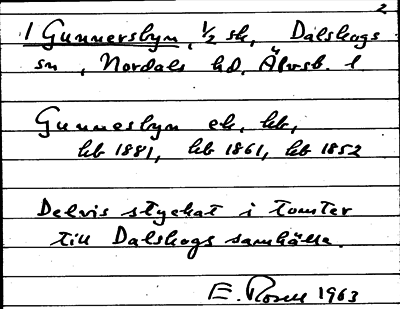 2
1 Gunnersbyn, 1/2 sk, Dalskogs
sn, Nordals hd, Älvsb. l
Gunnesbyn ek, kb,
kb 1881, kb 1861, kb 1852
Delvis styckat i tomter
till Dalskogs samhälle.
E. Rosell 1963